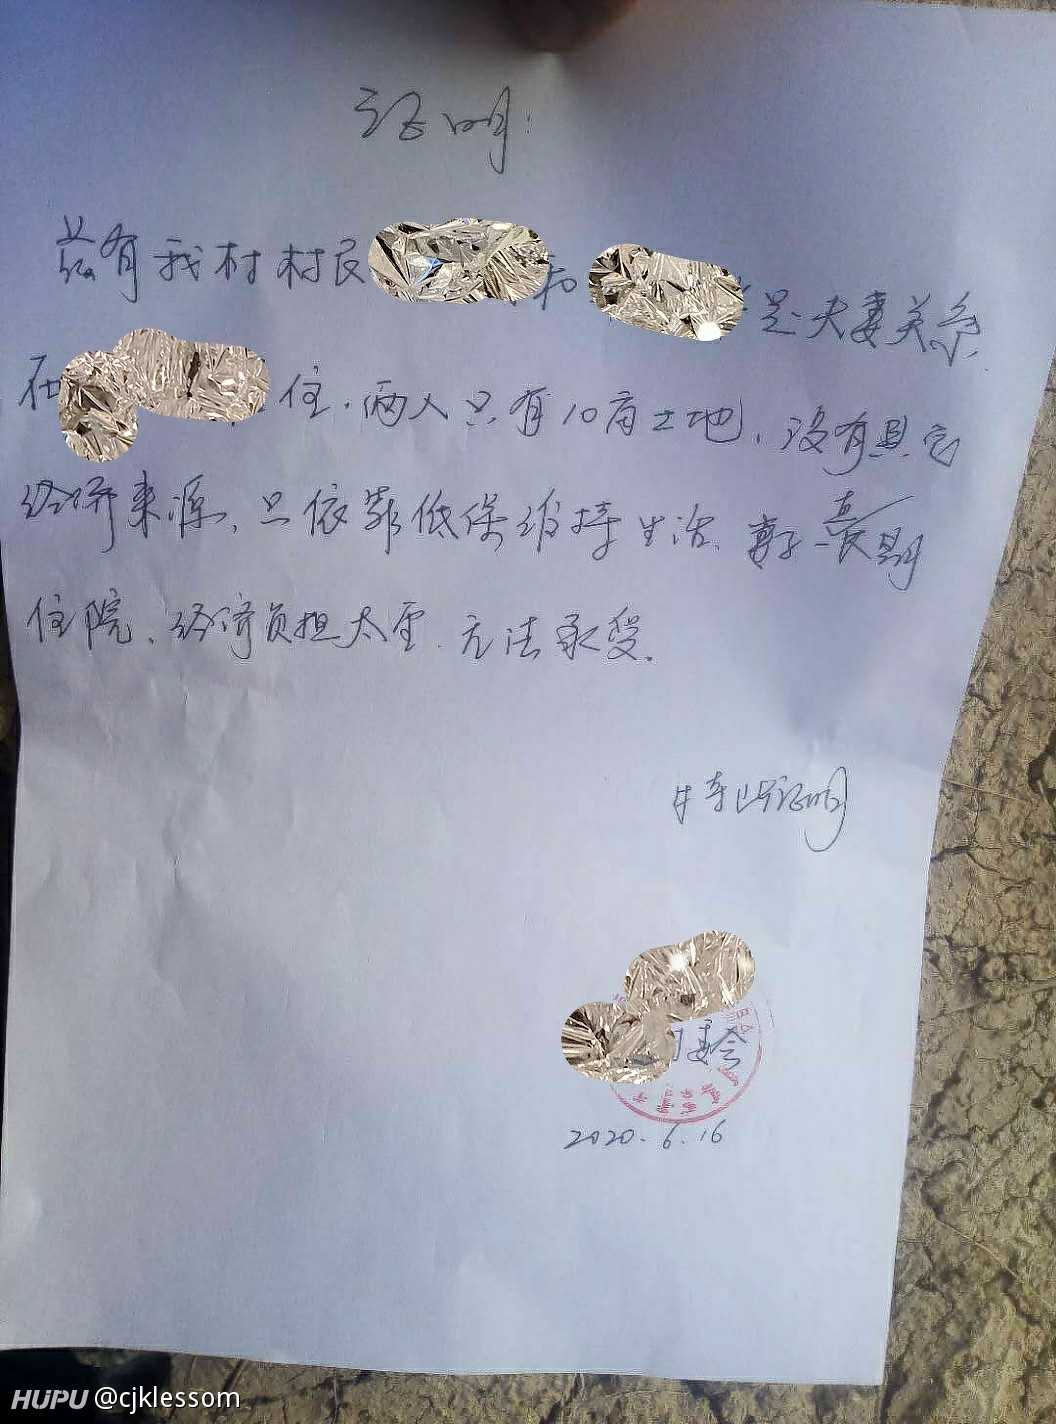 证明:
兹有我村村民 和 是夫妻关系
在 住.两人只有10亩土地,没有其它
经济来源,只依靠低保维持生活.妻子长期
住院、经济负担太重.无法承受.
特此证明
村委会
2020.6.16
HUPU @cjklessom